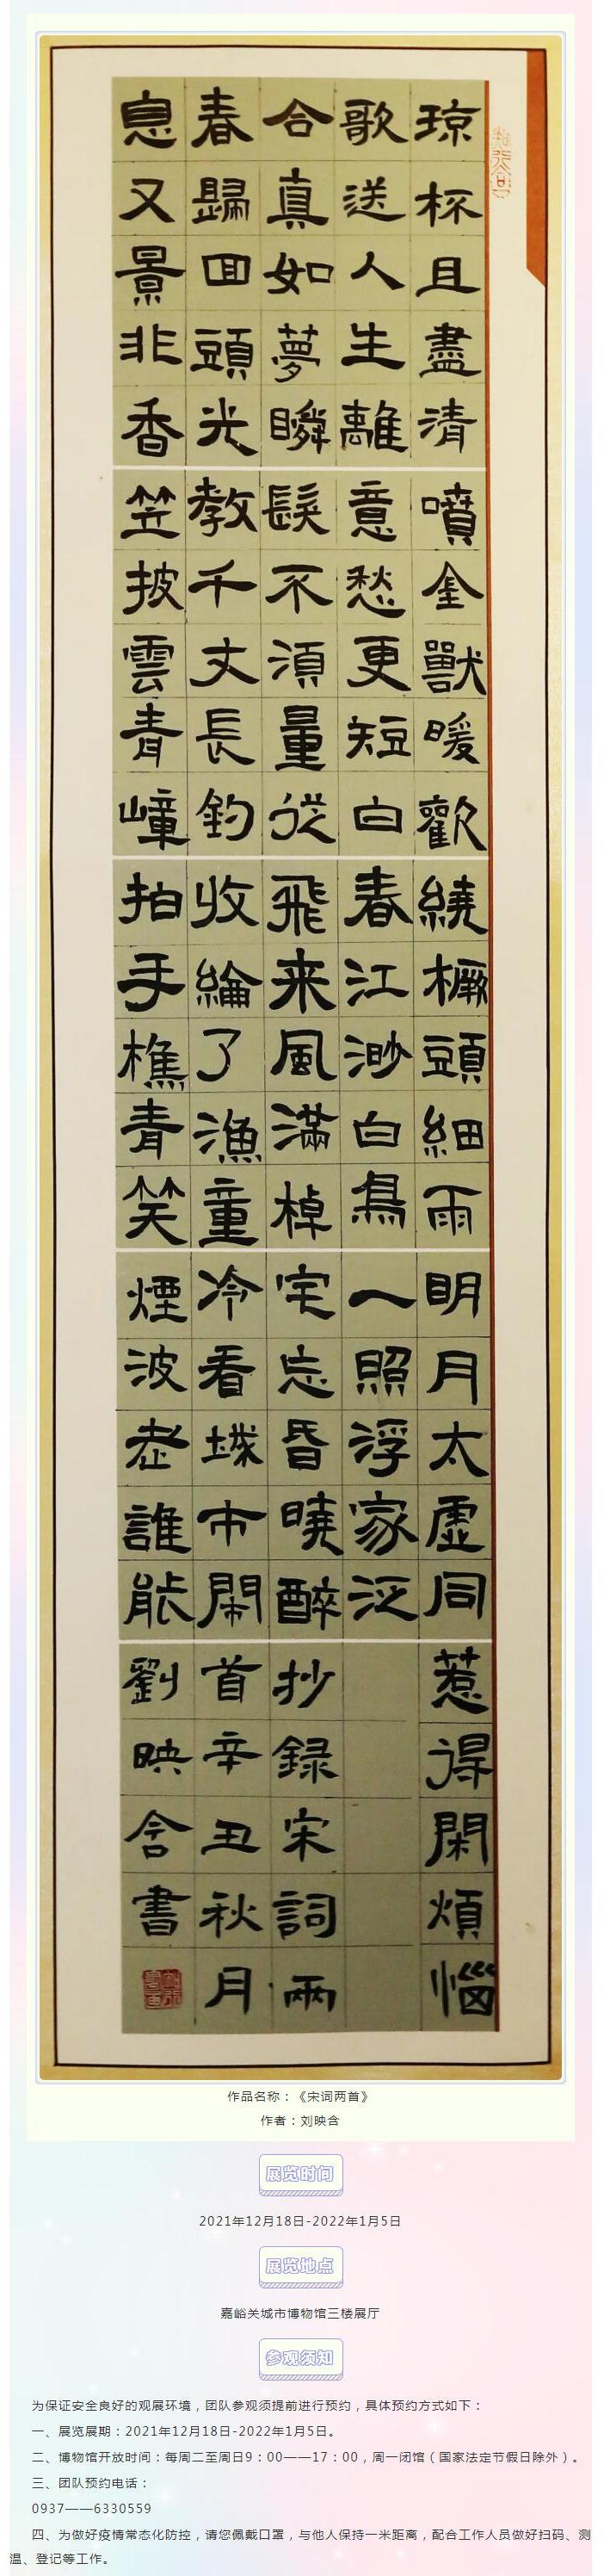 琼杯且盡清
歌送人生離
合真如夢瞬
春歸回頭光
息又景非香
噴金獸暖歡
意愁更短白
髮不須量從
教千丈長釣
笠披雲青嶂
繞橛頭細雨
春江渺白鳥
飛来風滿棹
收綸了漁童
拍手樵青笑
明月太虛同
一照浮家泛
宅忘昏曉醉
冷看城市鬧
煙波老誰能
惹得閑煩惱
抄録宋詞兩
首辛丑秋月
劉映含書
作品名称：《宋词两首》
作者：刘映含
展览时间
2021年12月18日-2022年1月5日
展览地点
嘉峪关城市博物馆三楼展厅
参观须知
为保证安全良好的观展环境，团队参观须提前进行预约，具体预约方式如下：
一、展览展期：2021年12月18日-2022年1月5日。
二、博物馆开放时间：每周二至周日9：00——17：00，周一闭馆（国家法定节假日除外）。
三、团队预约电话：
0937——6330559
四、为做好疫情常态化防控，请您佩戴口罩，与他人保持一米距离，配合工作人员做好扫码、测
温、登记等工作。